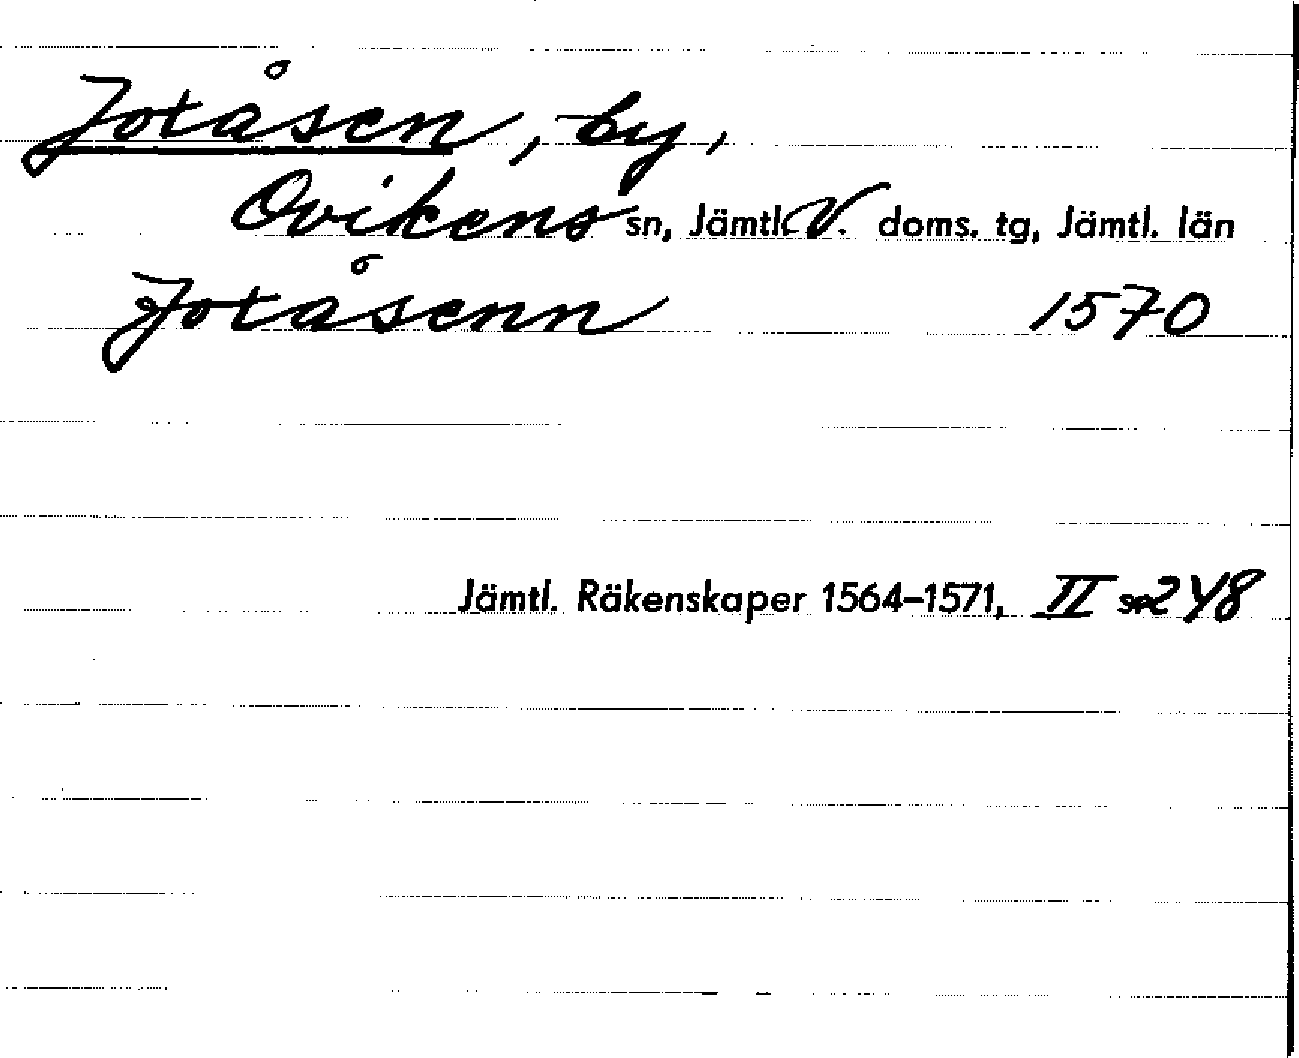 Jotåsen, by,
Ovikens sn, Jämtl. V. doms. tg, Jämtl. län
Jotåsenn 1570
Jämtl. Räkenskaper 1564–1571, II sp 248